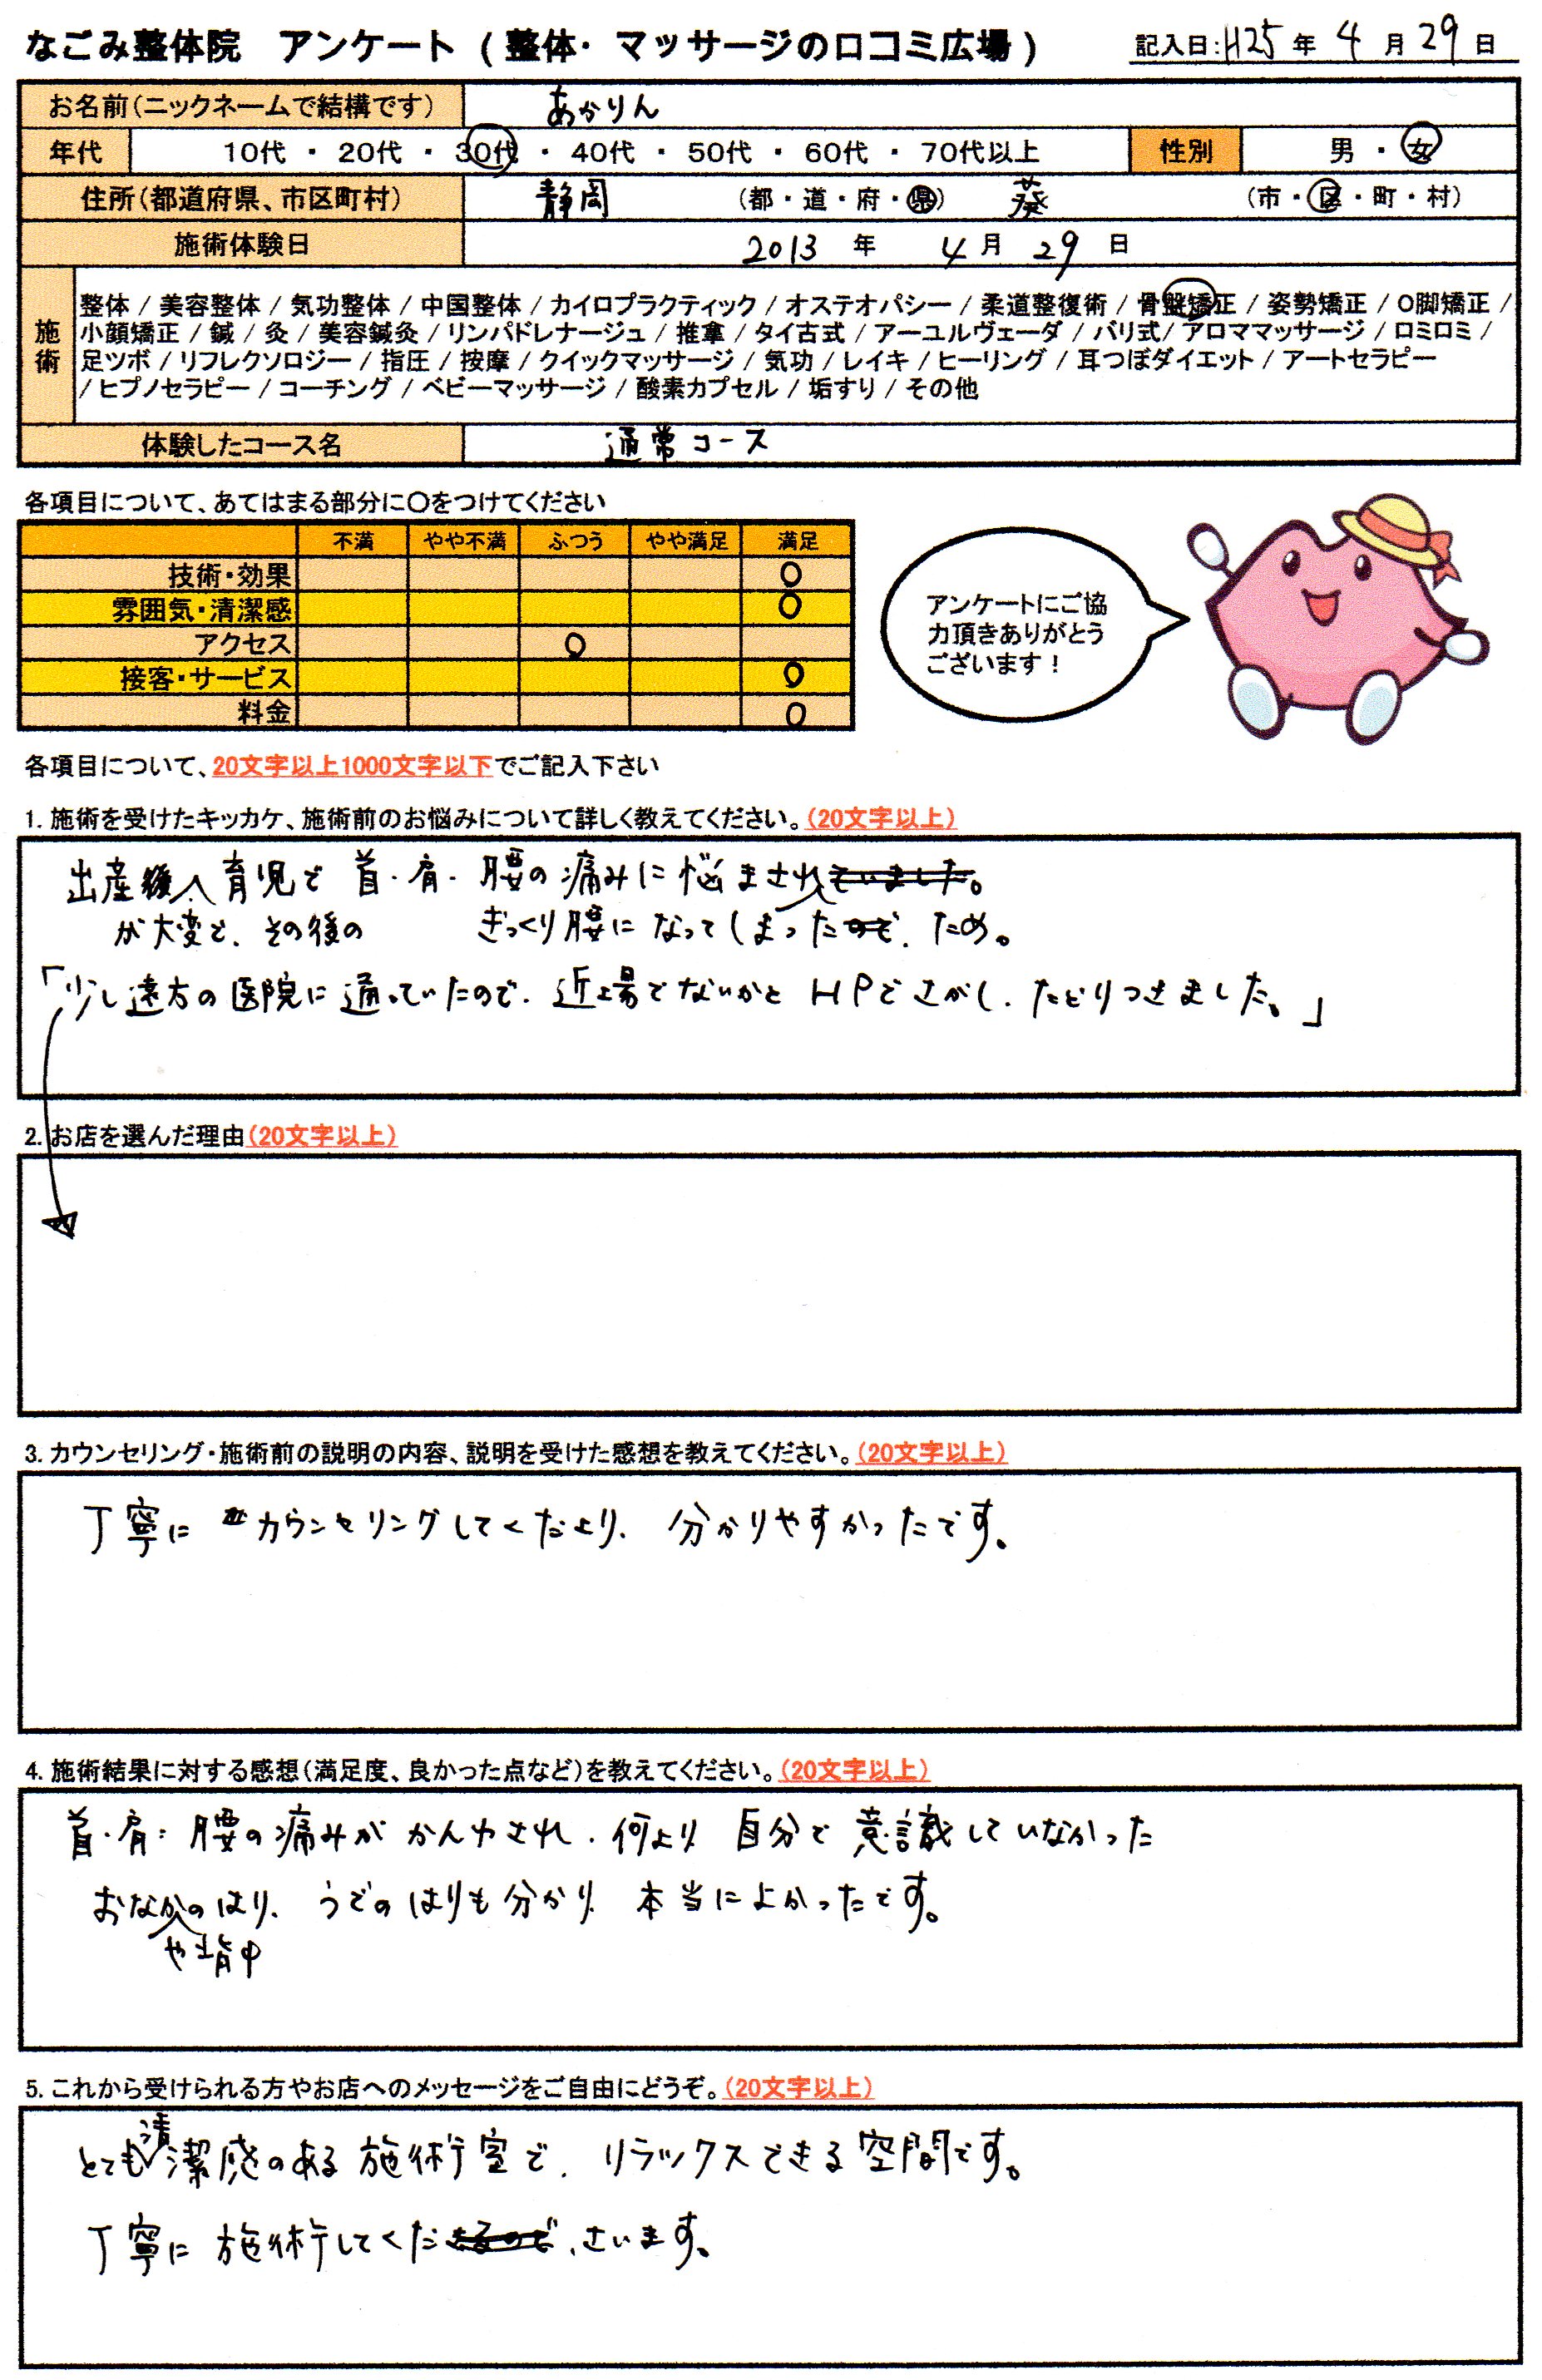 なごみ整体院 アンケート ( 整体・マッサージの口コミ広場 ) 記入日:H25年 4月 29日
お名前(ニックネームで結構です) あかりん
年代 10代 ・ 20代 ・ 30代 ・ 40代 ・ 50代 ・ 60代 ・ 70代以上 性別 男 ・ 女
住所(都道府県、市区町村) 静岡 (都・道・府・県) 葵 (市・区・町・村)
施術体験日 2013 年 4月 29 日
施術
整体 / 美容整体 / 気功整体 / 中国整体 / カイロプラクティック / オステオパシー / 柔道整復術 / 骨盤矯正 / 姿勢矯正 / O脚矯正 /
小顔矯正 / 鍼 / 灸 / 美容鍼灸 / リンパドレナージュ / 推拿 / タイ古式 / アーユルヴェーダ / バリ式 / アロママッサージ / ロミロミ /
足ツボ / リフレクソロジー / 指圧 / 按摩 / クイックマッサージ / 気功 / レイキ / ヒーリング / 耳つぼダイエット / アートセラピー
/ ヒプノセラピー / コーチング / ベビーマッサージ / 酸素カプセル / 垢すり / その他
体験したコース名 通常コース
各項目について、あてはまる部分に○をつけてください
不満 やや不満 ふつう やや満足 満足
技術・効果 ○
雰囲気・清潔感 ○
アクセス ○
接客・サービス ○
料金 ○
アンケートにご協
力頂きありがとう
ございます！
各項目について、20文字以上1000文字以下でご記入下さい
1. 施術を受けたキッカケ、施術前のお悩みについて詳しく教えてください。(20文字以上)
出産後育児で 首・肩・腰の痛みに悩まされていました。
が大変で、その後の ぎっくり腰になってしまったので、ため。
「少し遠方の医院に通っていたので、近場でないかとHPでさがし、たどりつきました。」
2. お店を選んだ理由(20文字以上)
3. カウンセリング・施術前の説明の内容、説明を受けた感想を教えてください。(20文字以上)
丁寧に カウンセリングしてくださり、分かりやすかったです。
4. 施術結果に対する感想(満足度、良かった点など)を教えてください。(20文字以上)
首・肩・腰の痛みがかんわされ、何より 自分で意識していなかった
おなかのはり、うでのはりも分かり 本当によかったです。
や背中
5. これから受けられる方やお店へのメッセージをご自由にどうぞ。(20文字以上)
とても清潔感のある施術室で、リラックスできる空間です。
丁寧に施術してくださるので、さいます。